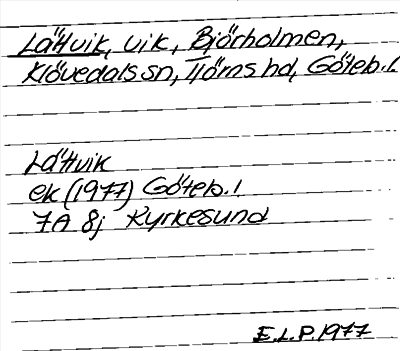 Lättvik, vik, Björholmen,
Klövedals sn, Tjörns hd, Göteb. l.
Lättvik
ek (1977) Göteb. l
7A 8j Kyrkesund
E.L.P. 1977